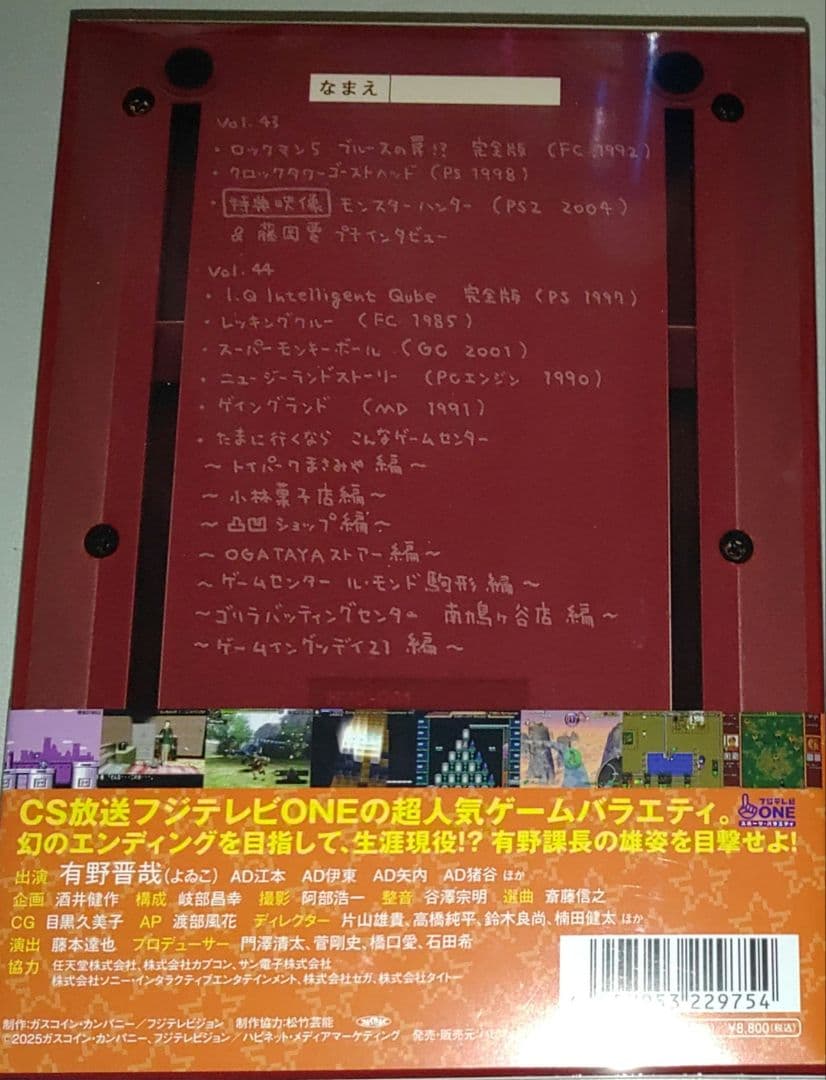 なまえ
Vol. 43
・ロックマン5 ブルースの罠!? 完全版 (FC 1992)
・クロックタワーゴーストヘッド (PS 1998)
・特典映像 モンスターハンター (PS2 2004)
& 藤岡要 プチインタビュー
Vol. 44
・I.Q Intelligent Qube 完全版 (PS 1997)
・レッキングクルー (FC 1985)
・スーパーモンキーボール (GC 2001)
・ニュージーランドストーリー (PCエンジン 1990)
・ゲイングランド (MD 1991)
・たまに行くなら こんなゲームセンター
～トイパークまさみや編～
～小林菓子店編～
～凸凹ショップ編～
～OGATAYAストアー編～
～ゲームセンター ル・モンド駒形編～
～ゴリラバッティングセンター 南鳩ヶ谷店 編～
～ゲームイングッデイ21 編～
CS放送フジテレビONEの超人気ゲームバラエティ。
フジテレビ
ONE
スポーツ・バラエティ
幻のエンディングを目指して、生涯現役!? 有野課長の雄姿を目撃せよ!
出演 有野晋哉(よゐこ) AD江本 AD伊東 AD矢内 AD猪谷 ほか
企画 酒井健作 構成 岐部昌幸 撮影 阿部浩一 整音 谷澤宗明 選曲 斎藤信之
CG 目黒久美子 AP 渡部風花 ディレクター 片山雄貴、高橋純平、鈴木良尚、楠田健太 ほか
演出 藤本達也 プロデューサー 門澤清太、菅剛史、橋口愛、石田希
協力 任天堂株式会社、株式会社カプコン、サン電子株式会社
株式会社ソニー・インタラクティブエンタテインメント、株式会社セガ、株式会社タイトー
953 229754
制作:ガスコイン・カンパニー／フジテレビジョン 制作協力:松竹芸能
¥8,800(税込)
©2025ガスコイン・カンパニー、フジテレビジョン／ハピネット・メディアマーケティング 発売・販売元:ハピ